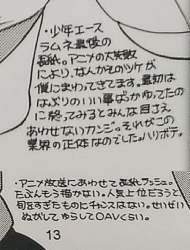 ・少年エース
ラムネ最後の
表紙。アニメの大失敗
により、なんかそのツケが
僕にまわってきてます。最初は
なぶりのいい事ばかりゆってたの
に終ってみるとみんな目さえ
あわせないカンジ。それがこの
業界の正体なのでした。ハリボテ。
・アニメ放送にあわせて表紙ラッシュ。
たぶんもう描かない。人気上位だろうと
旬をすぎたものにチャンスはない。せいぜい
ぬかしてゆらしてOAVくらい。
13